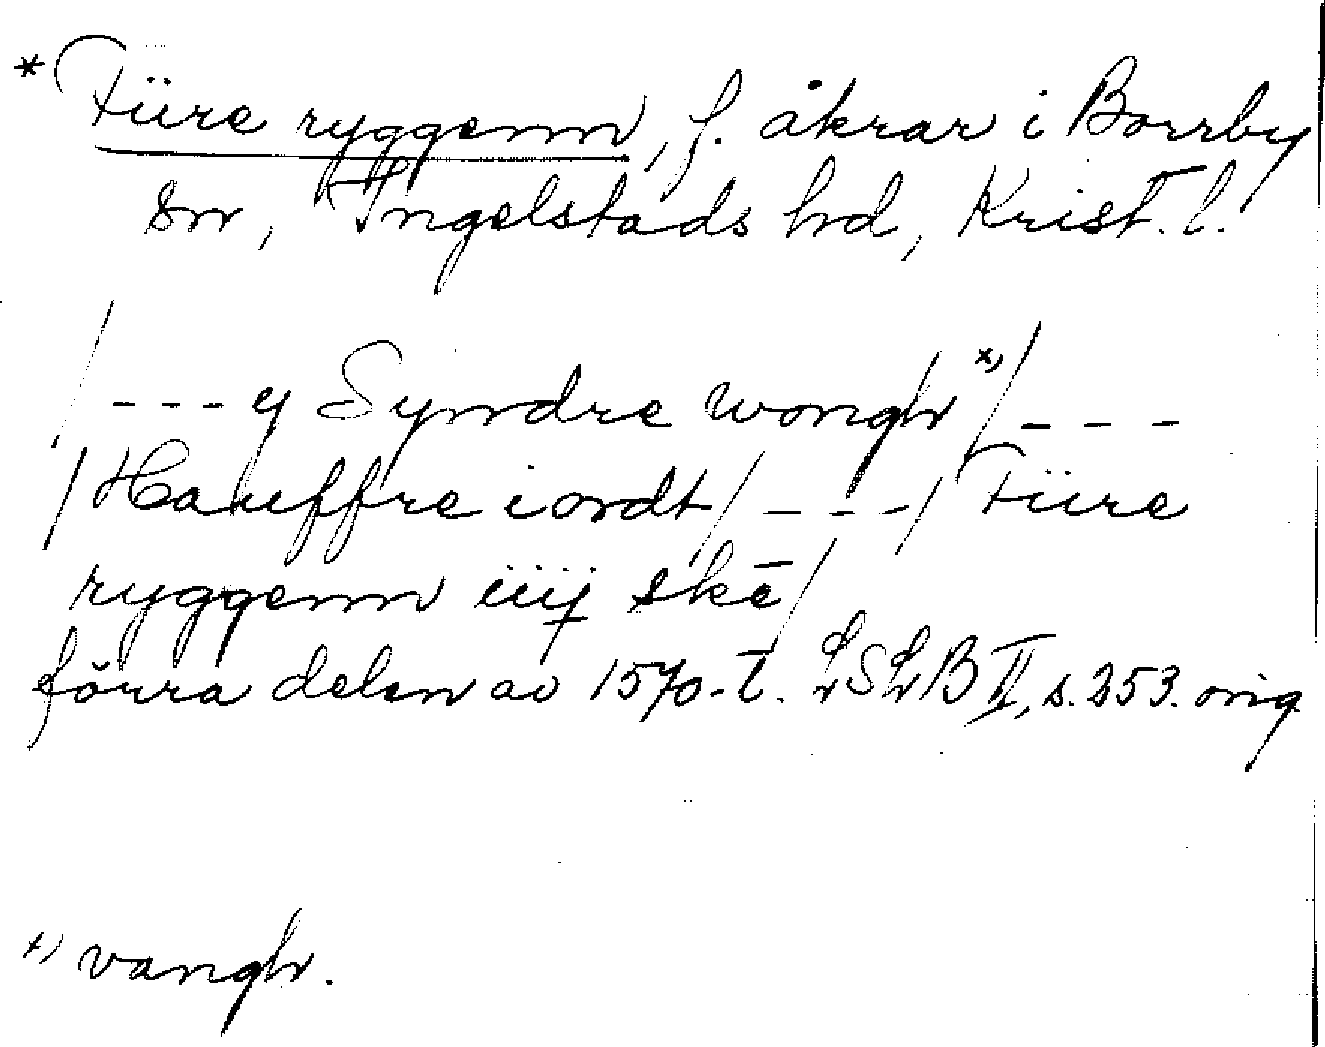 * Türe ryggenn, f. åkrar i Borrby
sn, Ingelstads hd, Krist. l.
/---y Syndre wongh *)/---
/Hauffre iordt/---/ Türe
ryggenn iiij skē/
förra delen av 1570-t. LSLB II, s. 253. orig.
*) vangh.